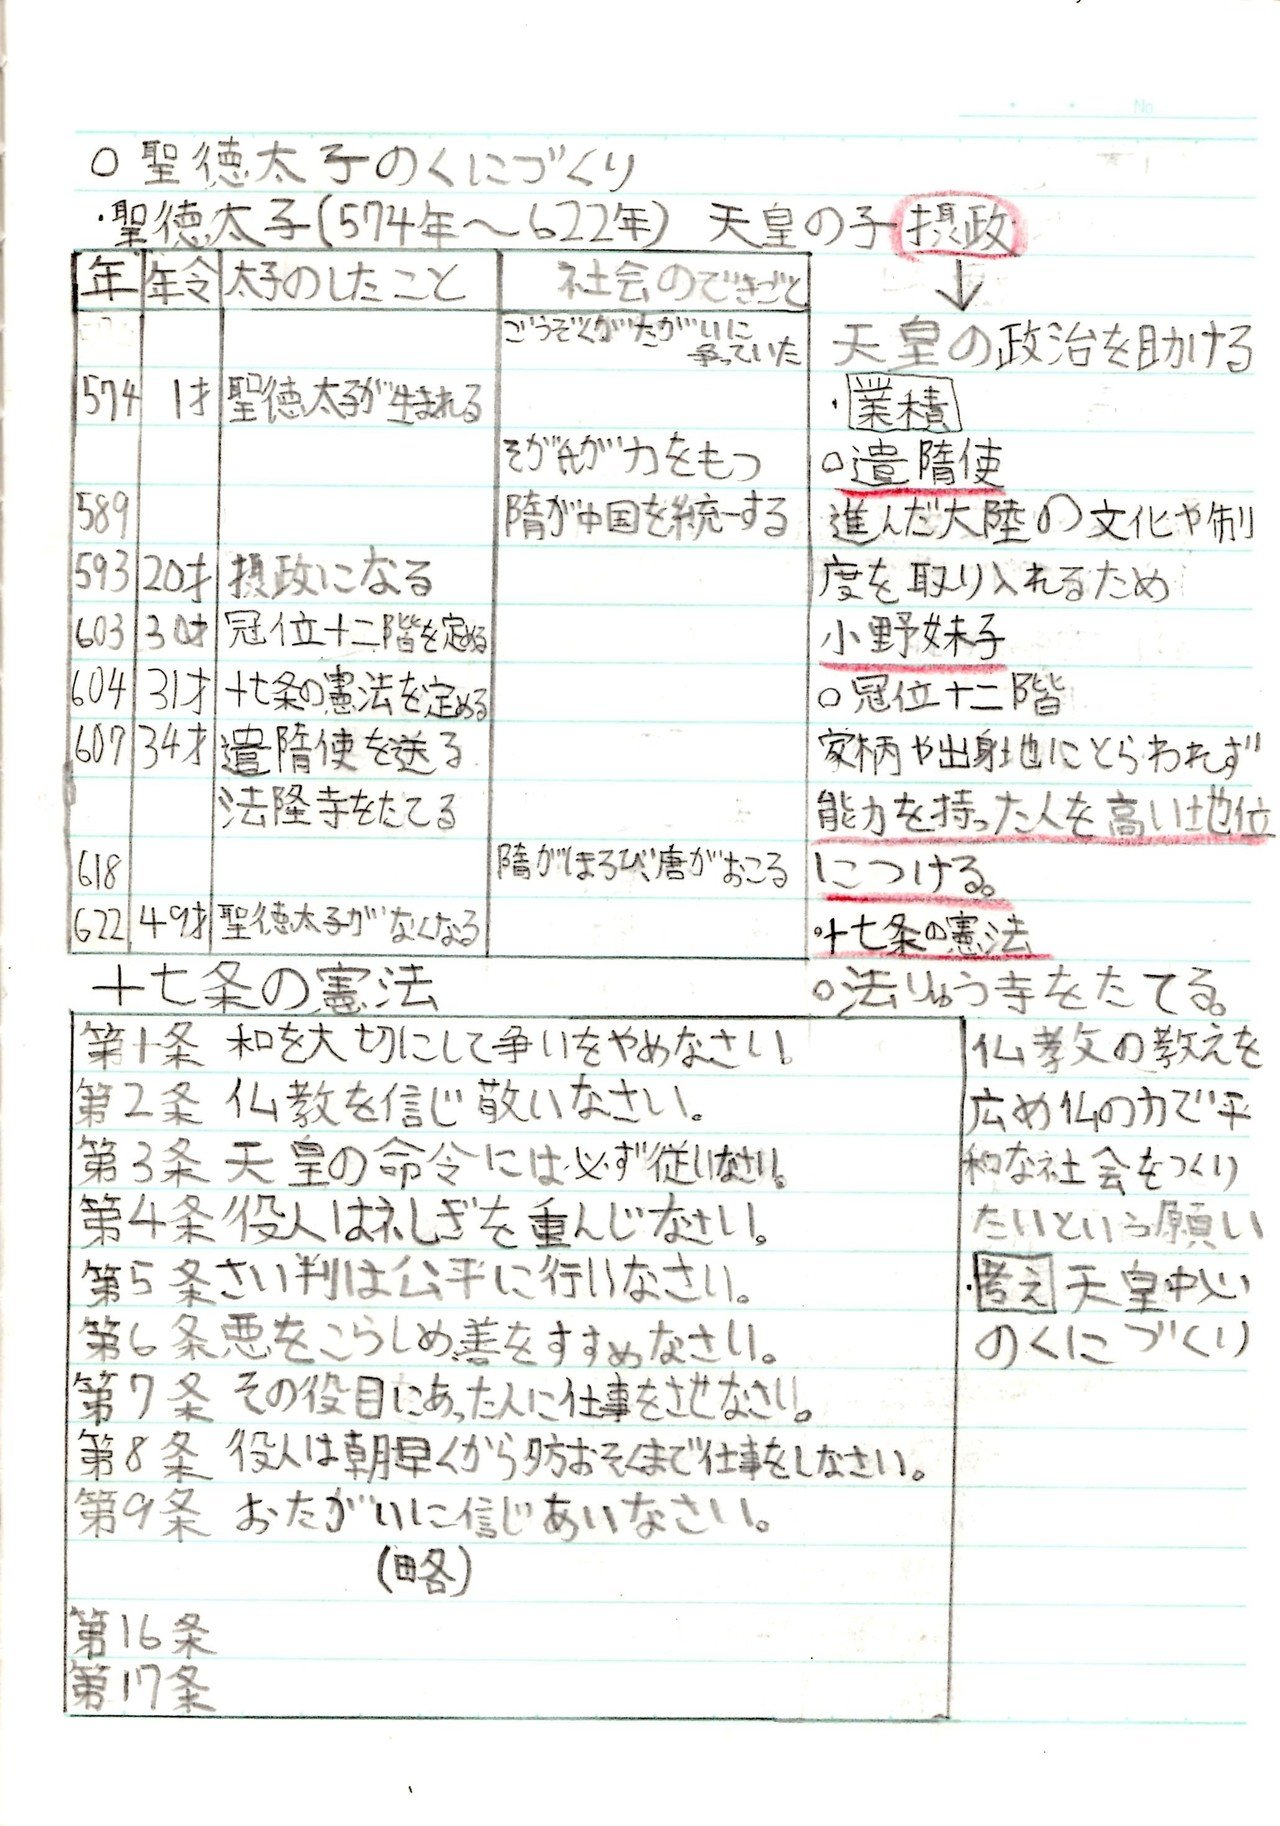 No.
○聖徳太子のくにづくり
・聖徳太子(574年〜622年) 天皇の子 摂政
↓
年 年令 太子のしたこと 社会のできごと
ごうぞくがたがいに
争っていた
574 1才 聖徳太子が生まれる
そが氏が力をもつ
589 隋が中国を統一する
593 20才 摂政になる
603 30才 冠位十二階を定める
604 31才 十七条の憲法を定める
607 34才 遣隋使を送る
法隆寺をたてる
618 隋がほろび、唐がおこる
622 49才 聖徳太子がなくなる
天皇の政治を助ける
・業積
○遣隋使
進んだ大陸の文化や制
度を取り入れるため
小野妹子
○冠位十二階
家柄や出身地にとらわれず
能力を持った人を高い地位
につける。
○十七条の憲法
○法りゅう寺をたてる。
仏孝文の教えを
広め仏の力で平
和な社会をつくり
たいという願い
・考え 天皇中心
のくにづくり
十七条の憲法
第1条 和を大切にして争いをやめなさい。
第2条 仏教を信じ敬いなさい。
第3条 天皇の命令には必ず従いなさい。
第4条 役人は礼ぎを重んじなさい。
第5条 さい判は公平に行いなさい。
第6条 悪をこらしめ善をすすめなさい。
第7条 その役目にあった人に仕事をさせなさい。
第8条 役人は朝早くから夕方おそくまで仕事をしなさい。
第9条 おたがいに信じあいなさい。
(略)
第16条
第17条